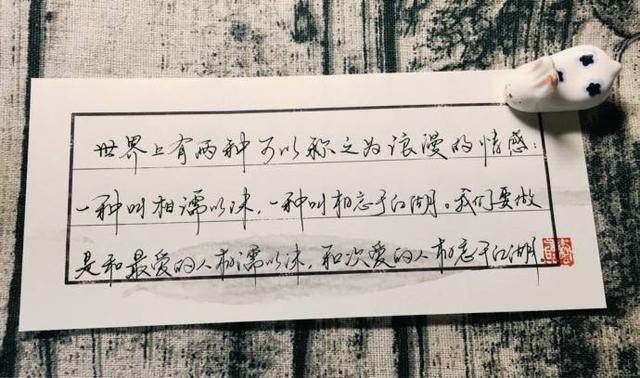 世界上有两种可以称之为浪漫的情感:
一种叫相濡以沫,一种叫相忘于江湖。我们要做
是和最爱的人相濡以沫,和次爱的人相忘于江湖.